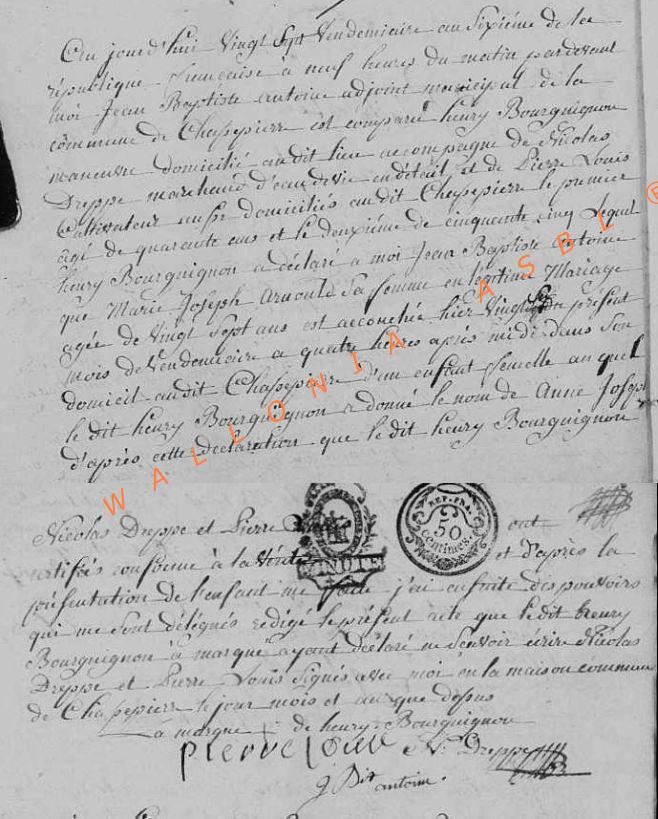 Au jourd'hui Vingt Sept Vendemiaire an Sixième de la
république francaise à neuf heures du matin pardevant
moi Jean Baptiste antoine adjoint municipal de la
commune de Chassepierre est comparu henry Bourguignon
maneuvre domicilié audit lieu accompagné de Nicolas
Dreppe marchand d'eau de vie en détail et de Pierre Louis
Cultivateur aussi domiciliés audit Chassepierre le premier
agé de quarante ans et le deuxième de cinquante cinq Lequel
henry Bourguignon a déclaré à moi Jean Baptiste antoine
que Marie Joseph Arnould Sa femme en légitime Mariage
agée de Vingt Sept ans est accouchée hier Vingt Six du présent
mois de Vendemiaire a quatre heures après midi dans Son
domicil audit Chassepierre d'un enfant femelle au quel
le dit henry Bourguignon a donné le nom de Anne Joseph
d'après cette declaration que le dit henry Bourguignon
WALLONIA ASBL ®
Nicolas Dreppe et Pierre ont
certifiés conforme à la Vérité et d'après la
REP. FRA.
50
centimes.
MINUTE
présentation de l'enfant me faite j'ai ensuite des pouvoirs
qui me sont délégués rédigé le présent acte que ledit henry
Bourguignon à marqué ayant déclaré ne Savoir écrire Nicolas
Dreppe et Pierre Louis Signés avec moi en la maison commune
de Chassepierre le jour mois et an que dessus
La marque + de henry Bourguignon
pierre louis N. Dreppe
J Bte antoine.